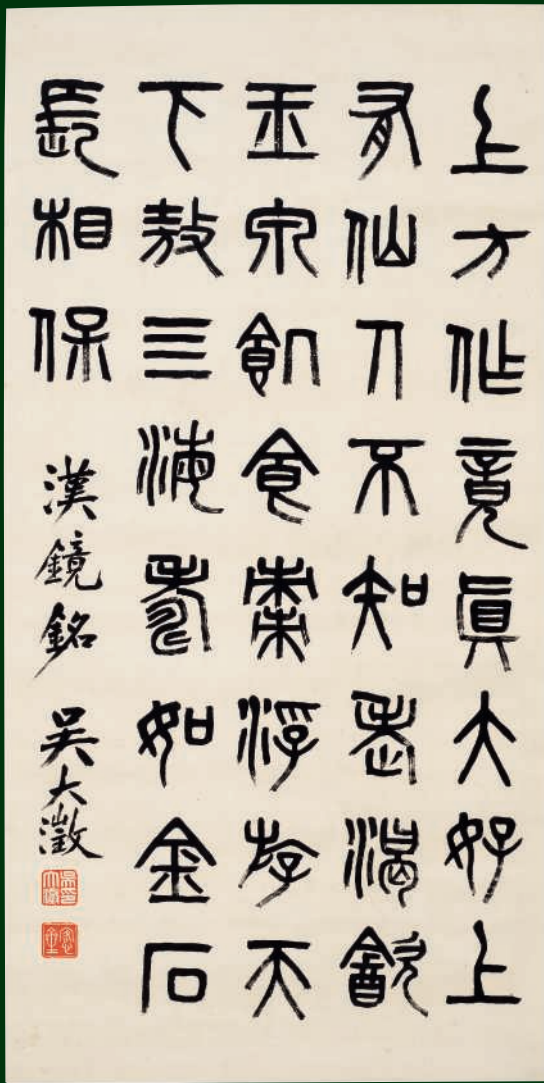 上方作竟眞大好上
有仙人不知老渴飲
玉泉飢食棗浮斿天
下敖三海壽如金石
長相保 漢鏡銘 吳大澂
吳大澂印